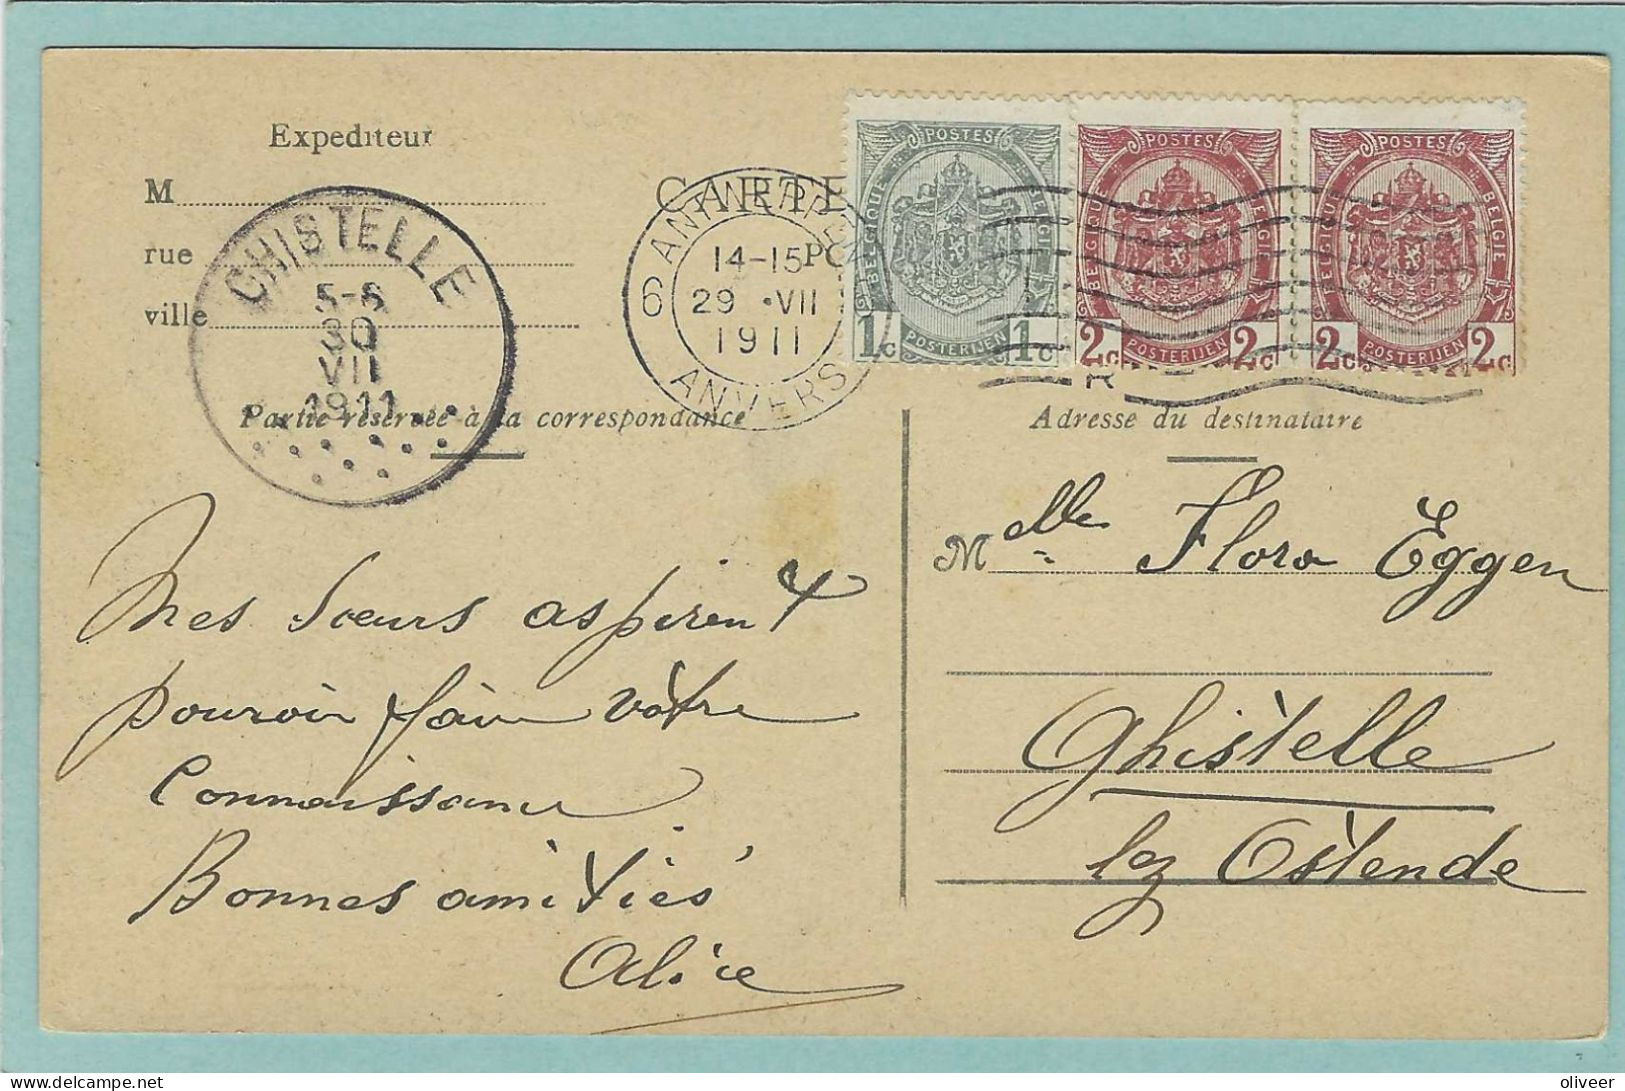 Expediteur
M
rue
ville
CARTE
PO
GHISTELLE
5-6
30
VII
1911
ANTWERPEN
14-15
29 ·VII
1911
6
ANVERS
POSTES
BELGIQUE
BELGIE
1c 1c
POSTERIJEN
POSTES
BELGIQUE
BELGIE
2c 2c
POSTERIJEN
POSTES
BELGIQUE
BELGIE
2c 2c
POSTERIJEN
Partie réservée à la correspondance
Adresse du destinataire
Mes Sœurs aspirent
pouvoir faire votre
Connaissance
Bonnes amitiés
Alice
Melle Flora Eggen
Ghistelle
lez Ostende
delcampe.net
oliveer